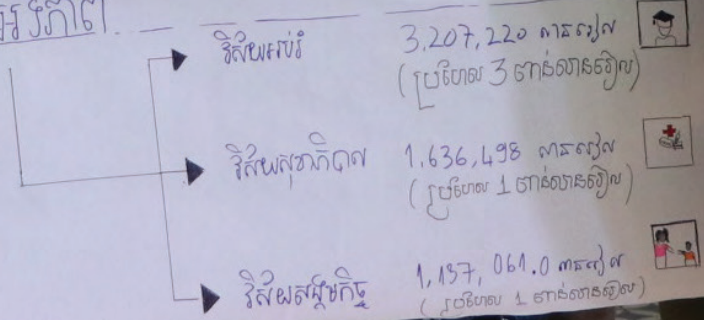 វិស័យអប់រំ
3,207,220 លានរៀល
(ប្រហែល 3 ពាន់លានរៀល)
វិស័យសុខាភិបាល
1,636,498 លានរៀល
(ប្រហែល 1 ពាន់លានរៀល)
វិស័យសង្គមកិច្ច
1,137,061.0 លានរៀល
(ប្រហែល 1 ពាន់លានរៀល)